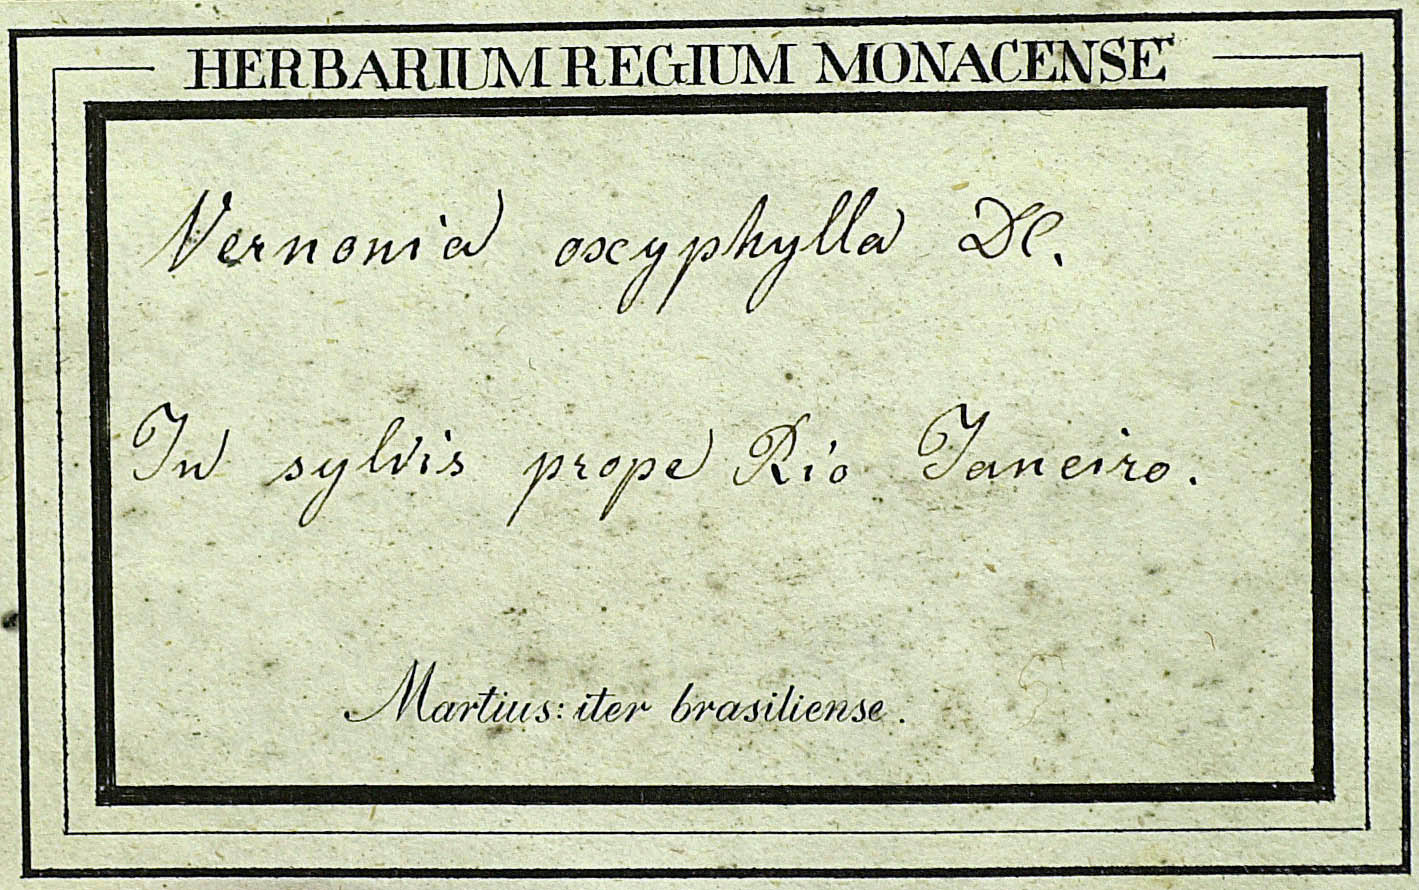 HERBARIUM REGIUM MONACENSE
Vernonia oxyphylla DC.
In sylvis prope Rio Janeiro.
Martius: iter brasiliense.